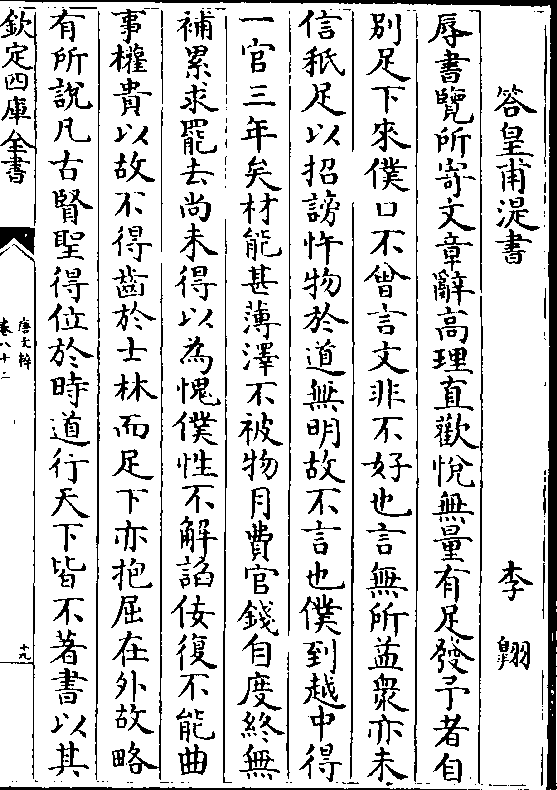 答皇甫湜書 李翺
辱書覽所寄文章辭高理直歡悅無量有足發予者自
別足下來僕口不曾言文非不好也言無所益衆亦未
信秖足以招謗忤物於道無明故不言也僕到越中得
一官三年矣材能甚薄澤不被物月費官錢自度終無
補累求罷去尚未得以為愧僕性不解諂佞復不能曲
事權貴以故不得齒於士林而足下亦抱屈在外故略
有所説凡古賢聖得位於時道行天下皆不著書以其
欽定四庫全書
唐文粹
卷八十二
十九